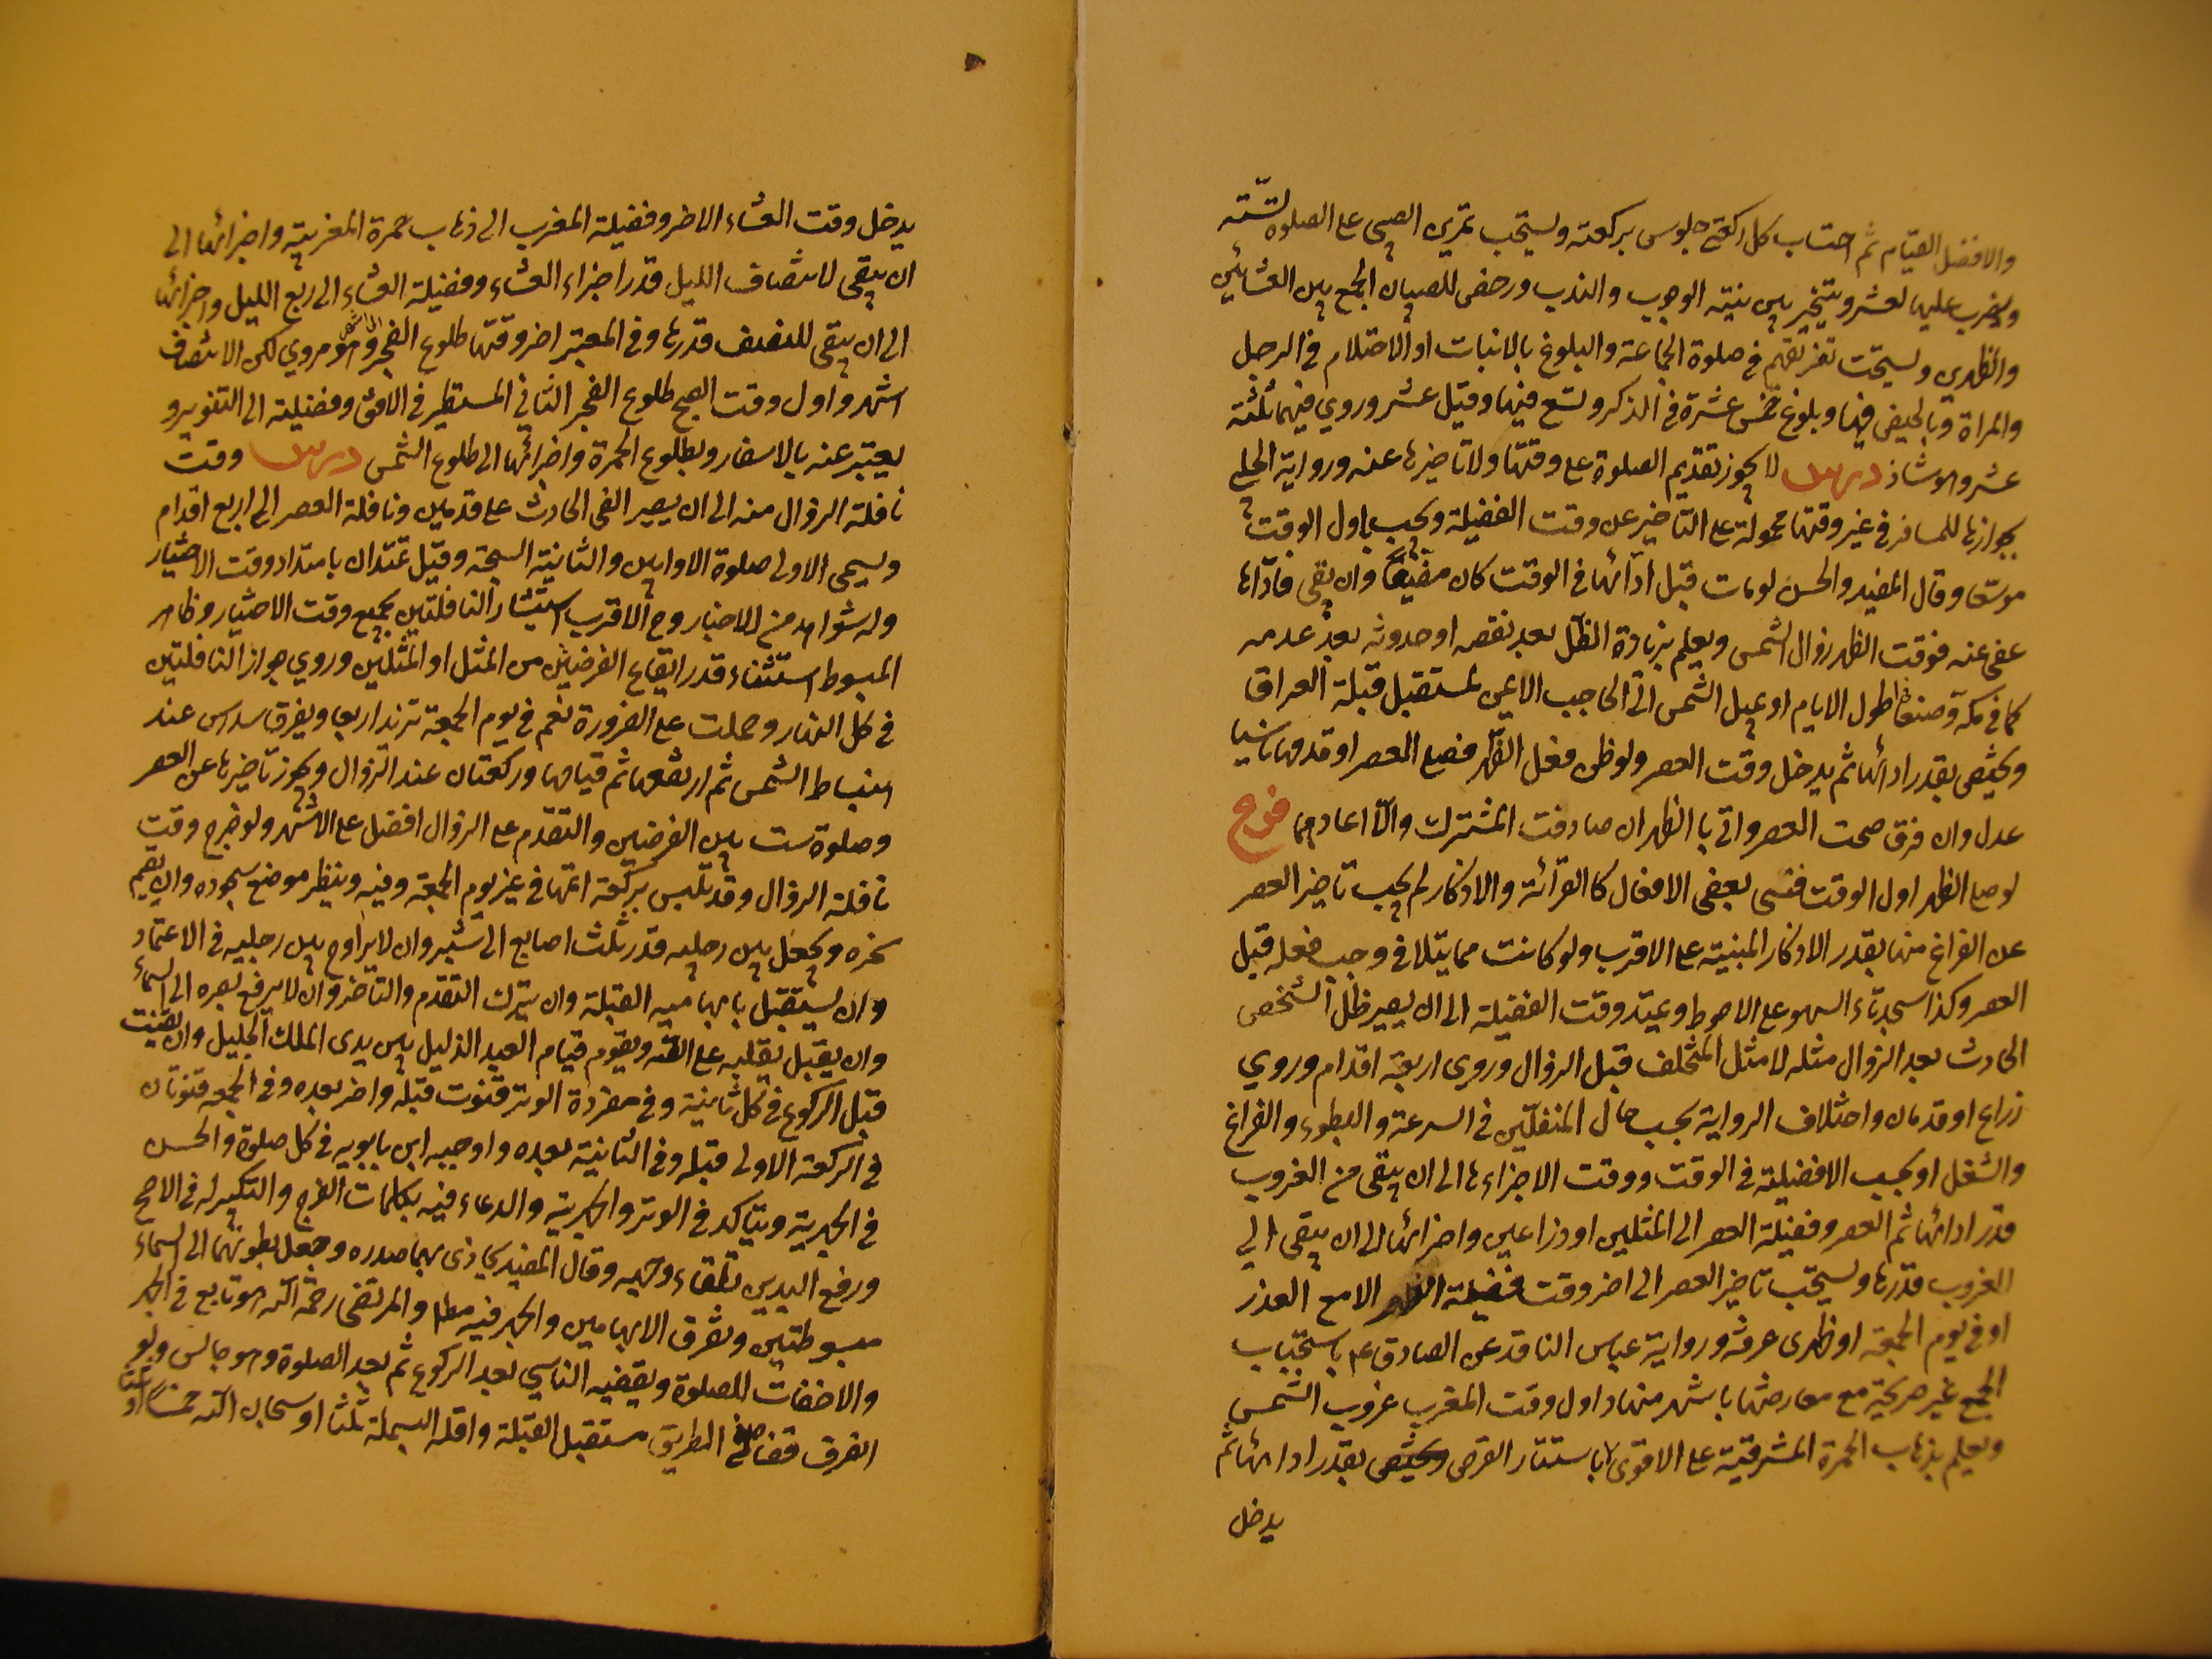 والافضل القيام ثم احتساب كل ركعتي جلوس بركعة ويستحب تمرين الصبي على الصلوة لستة
ويضرب عليها لعشر ويتخير بين نية الوجوب والندب ورخص للصبيان الجمع بين العشائين
والظهرين ويستحب تفريقهم في صلوة الجماعة والبلوغ بالانبات او الاحتلام في الرجل
والمراة وبالحيض فيها وبلوغ خمس عشرة في الذكر وتسع فيها وقيل عشر وروي فيهما ثلثة
عشر والاشاذ درس لا يجوز تقديم الصلوة على وقتها ولا تاخيرها عنه ورواية الحلبي
بجوازها للمسافر في غير وقتها محمولة على التاخير عن وقت الفضيلة ويجب باول الوقت
موسّعا وقال المفيد والحسن لو مات قبل ادائها في الوقت كان مضيّعا وان بقي فادّاها
عفى عنه فوقت الظهر زوال الشمس ويعلم بزيادة الظلّ بعد نقصه او حدوثه بعد عدمه
كما في مكة وصنعا اطول الايام او بميل الشمس الى الحاجب الايمن لمستقبل قبلة العراق
ويختص بقدر ادائها ثم يدخل وقت العصر ولو ظن فعل الظهر فصلى العصر او قدمها ناسيا
عدل وان فرق صحت العصر واتى بالظهر ان صادفت المشترك والّا اعادهما فرع
لو صلى الظهر اول الوقت فنسى بعض الافعال كالقرائة والاذكار لم يجب تاخير العصر
عن الفراغ منها بقدر الاذكار المنسية على الاقرب ولو كانت مما يتلافى وجب فعله قبل
العصر وكذا سجدتاء السهو على الاحوط ويمتد وقت الفضيلة الى ان يصير ظل الشخص
الحادث بعد الزوال مثله لا مثل المتخلف قبل الزوال وروى اربعة اقدام وروي
ذراع او قدمان واختلاف الرواية بحسب حال المتنفلين في السرعة والبطوء والفراغ
والشغل او بحسب الافضلية في الوقت ووقت الاجزاء لها الى ان يبقى من الغروب
قدر ادائها ثم العصر وفضيلة العصر الى المثلين او ذراعين واجزائها الى ان يبقى الى
الغروب قدرها ويستحب تاخير العصر الى اخر وقت فضيلة الظهر الا مع العذر
او في يوم الجمعة او ظهرى عرفة ورواية عباس الناقد عن الصادق عم باستحباب
الجمع غير صريحة مع معارضتها باشهر منها واول وقت المغرب غروب الشمس
ويعلم بذهاب الحمرة المشرقية على الاقوى لا باستتار القرص ويختص بقدر ادائها ثم
يدخل
يدخل وقت العشاء الاخر وفضيلة المغرب الى ذهاب حمرة المغربية واجزائها الى
ان يبقى لانتصاف الليل قدر اجزاء العشاء وفضيلة العشاء الى ربع الليل واجزائها
الى ان يبقى للنصف قدرها وفي المعتبر اخر وقتها طلوع الفجر وهو مروي لكن الانتصاف
اشهر واول وقت الصبح طلوع الفجر الثاني المستطير في الافق وفضيلته الى التنوير و
يعتبر عنه بالاسفار وبطلوع الحمرة واجزائها الى طلوع الشمس درس وقت
نافلة الزوال منه الى ان يصير الفى الحادث على قدمين ونافلة العصر الى اربع اقدام
ويسمى الاولى صلوة الاوابين والثانية السبحة وقيل تمتدان بامتداد وقت الاختيار
وله شواهد من الاخبار وح الاقرب استيثار النافلتين بجميع وقت الاختيار وظاهر
المبسوط استثناء قدر ايقاع الفرضين من المثل او المثلين وروي جواز النافلتين
في كل النهار وحملت على الضرورة نعم في يوم الجمعة تزند اربعا ويفرق سداس عند
انبساط الشمس ثم ارتفعها ثم قيامها وركعتان عند الزوال ويجوز تاخيرها عن العصر
وصلوة ست بين الفرضين والتقدم على الزوال افضل على الاشهر ولو خرج وقت
نافلة الزوال وقد تلبس بركعة اتمها في غير يوم الجمعة وفيه وينظر موضع سجوده وان يقيم
نحره ويجعل بين رجليه قدر ثلث اصابع الى شبر وان لا يراوح بين رجليه في الاعتماد
وان يستقبل بابهاميه القبلة وان يترك التقدم والتاخر وان لا يرفع بصره الى السماء
وان يقبل بقلبه على الله ويقوم قيام العبد الذليل بين يدى الملك الجليل وان يقنت
قبل الركوع في كل ثانية وفي مفردة الوتر قنوت قبله واخر بعده وفي الجمعة قنوتان
في الركعة الاولى قبله وفي الثانية بعده واوجبه ابن بابويه في كل صلوة والحسن
في الجهرية ويتاكد في الوتر والجهرية والدعاء فيه بكلمات الفرج والتكبير له في الاصح
ورفع اليدين تلقاء وجهه وقال المفيد يحاذى بهما صدره وجعل بطونهما الى السماء
مبسوطتين وتفرق الابهامين والجهر فيه مطلا والمرتضى رحمة الله هو تابع في الجهر
والاخفات للصلوة ويقضيه الناسي بعد الركوع ثم بعد الصلوة وهو جالس ولو
انفرق قضاه في الطريق مستقبل القبلة واقله البسملة ثلثا او سبحان الله خمسا او ثلثا